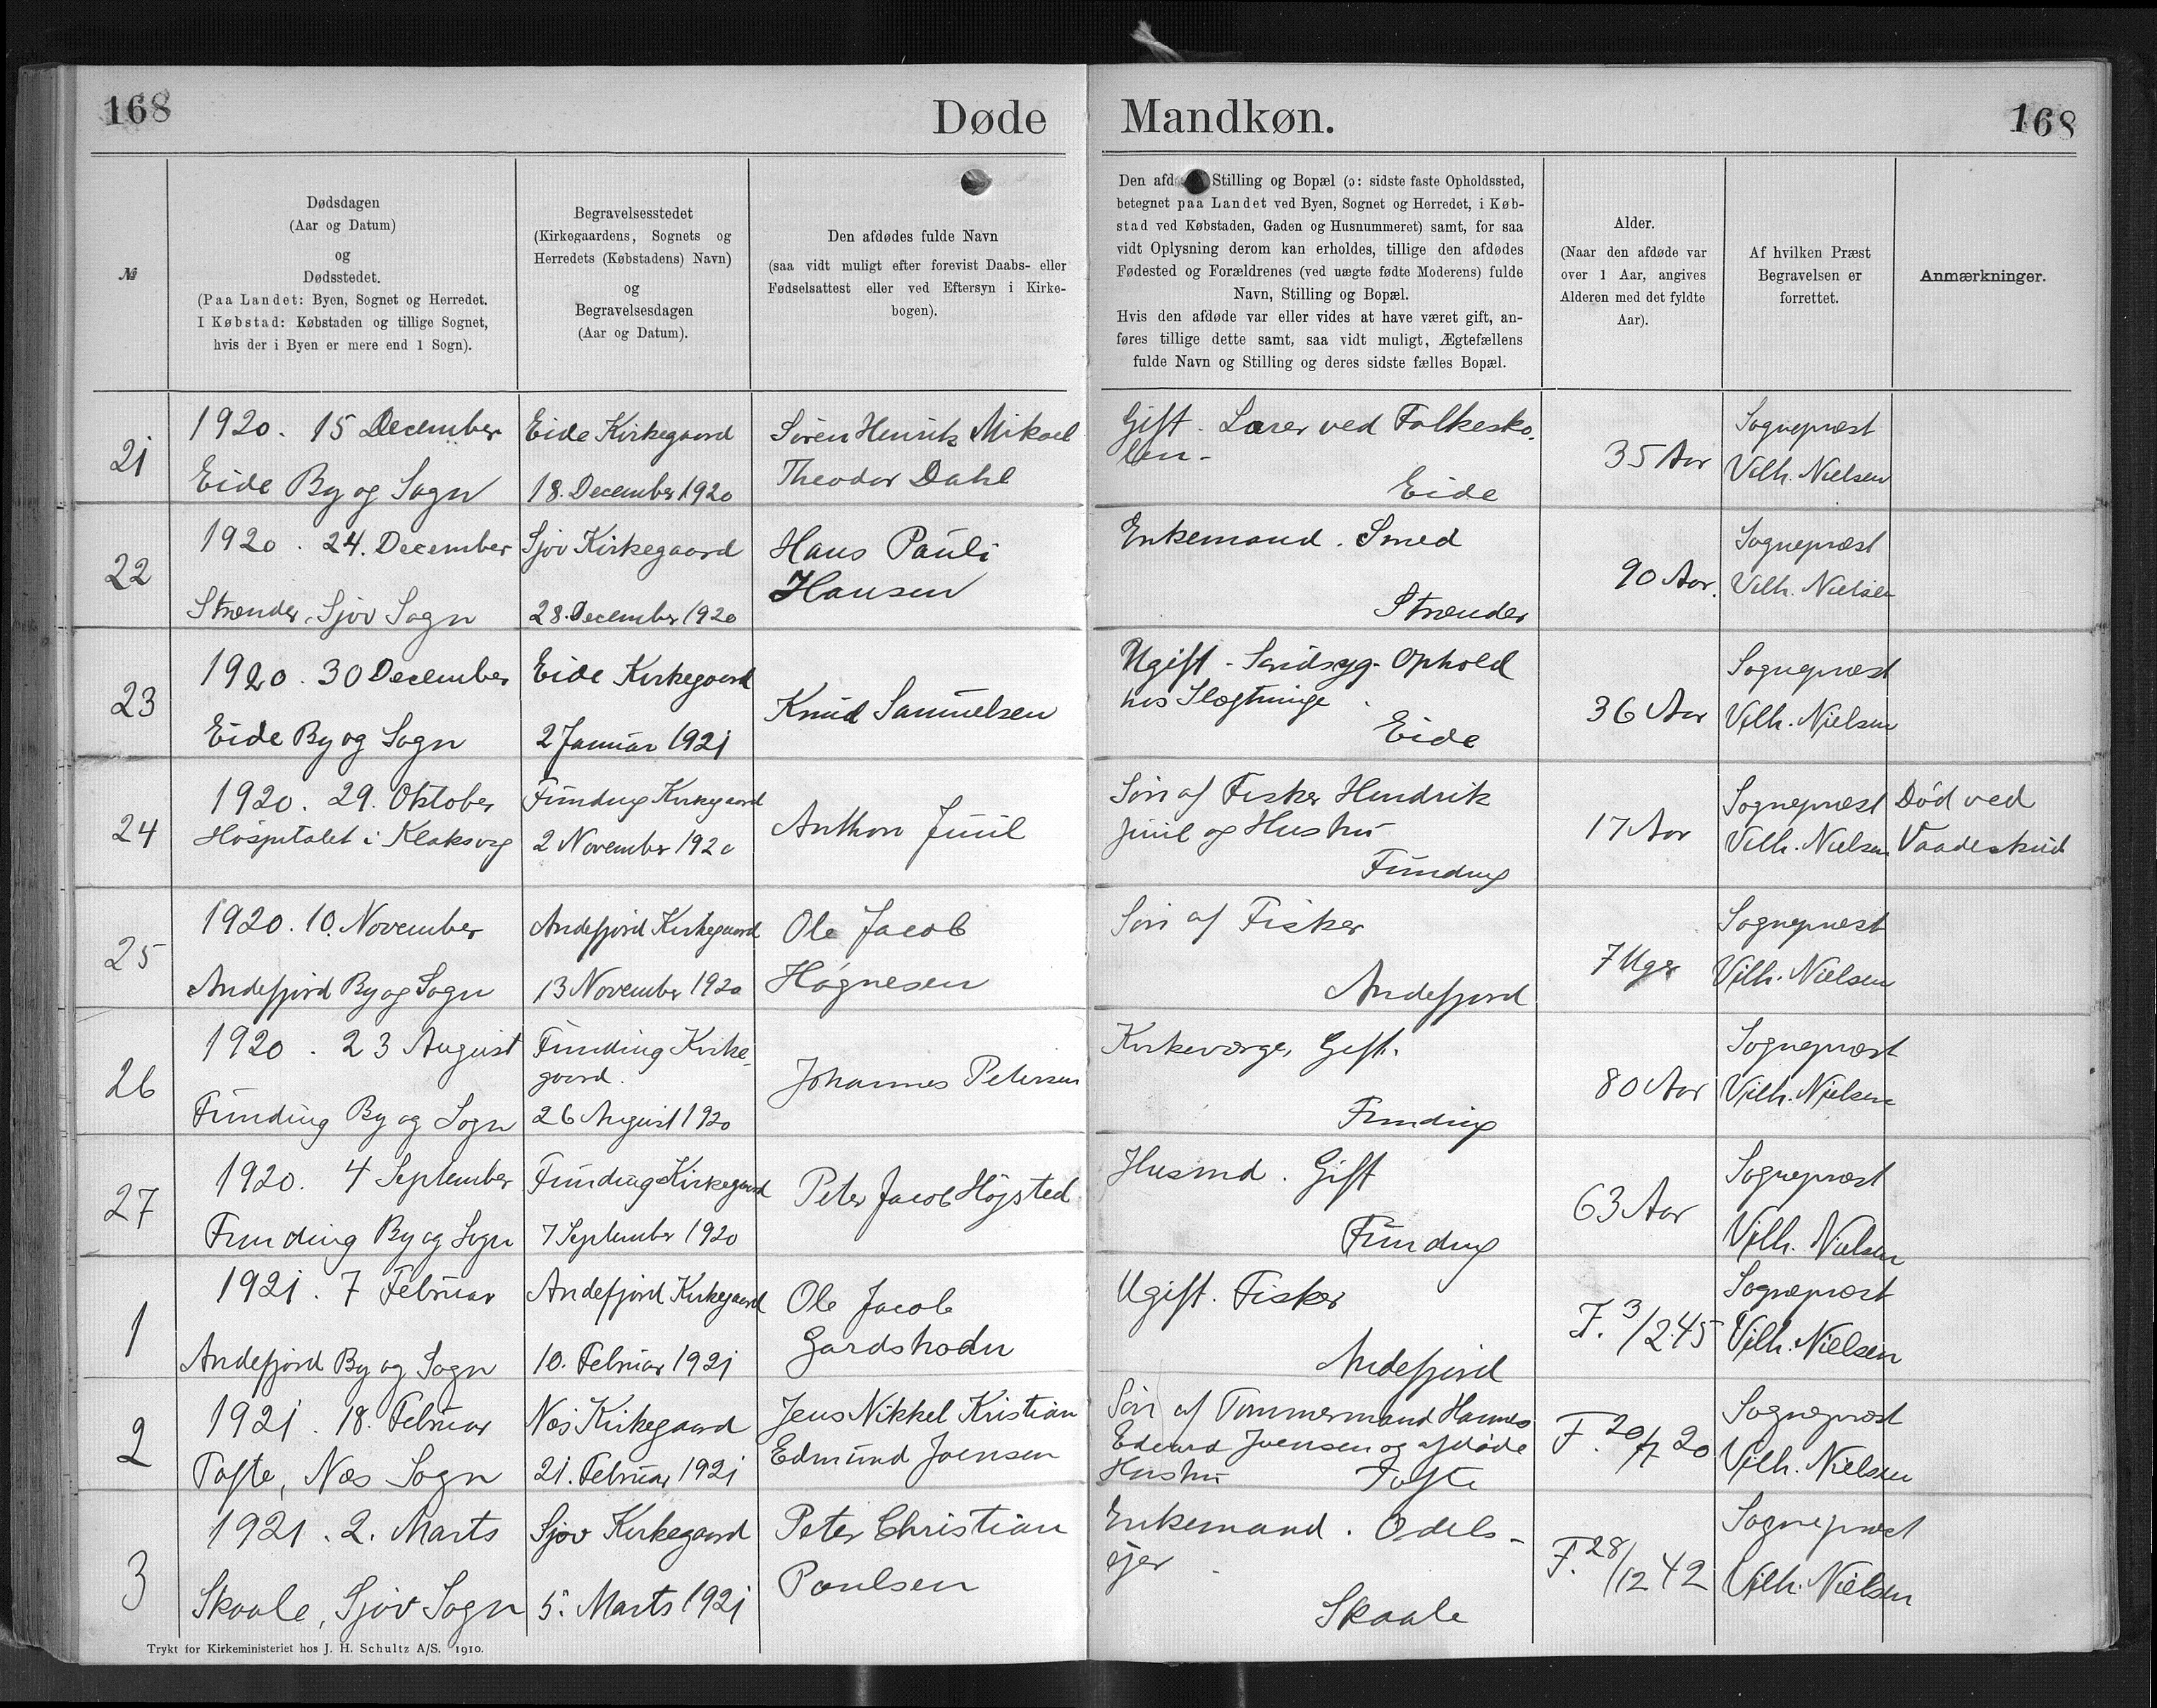 168
Døde
Mandkøn.
168
№
Dødsdagen
(Aar og Datum)
og
Dødsstedet.
(Paa Landet: Byen, Sognet og Herredet.
I Købstad: Købstaden og tillige Sognet,
hvis der i Byen er mere end 1 Sogn).
Begravelsesstedet
(Kirkegaardens, Sognets og
Herredets (Købstadens) Navn)
og
Begravelsesdagen
(Aar og Datum).
Den afdødes fulde Navn
(saa vidt muligt efter forevist Daabs- eller
Fødselsattest eller ved Eftersyn i Kirke-
bogen).
Den afd Stilling og Bopæl (ɔ: sidste faste Opholdssted,
betegnet paa Landet ved Byen, Sognet og Herredet, i Køb-
stad ved Købstaden, Gaden og Husnummeret) samt, for saa
vidt Oplysning derom kan erholdes, tillige den afdødes
Fødested og Forældrenes (ved uægte fødte Moderens) fulde
Navn, Stilling og Bopæl.
Hvis den afdøde var eller vides at have været gift, an-
føres tillige dette samt, saa vidt muligt, Ægtefællens
fulde Navn og Stilling og deres sidste fælles Bopæl.
Alder.
(Naar den afdøde var
over 1 Aar, angives
Alderen med det fyldte
Aar).
Af hvilken Præst
Begravelsen er
forrettet.
Anmærkninger.
21
1920. 15 December
Eide By og Sogn
Eide Kirkegaard
18. December 1920
Søren Henrik Mikael
Theodor Dahl
Gift. Lærer ved Folkesko-
len-
Eide
35 Aar
Sognepræst
Vilh. Nielsen
22
1920. 24. December
Strænder, Sjov Sogn
Sjov Kirkegaard
28. December 1920
Hans Pauli
Hansen
Enkemand. Smed
Strænder
90 Aar.
Sognepræst
Vilh. Nielsen
23
1920. 30 December
Eide By og Sogn
Eide Kirkegaard
2 Januar 1921
Knud Samuelsen
Ugift - Sindsyg - Ophold
hos Slægtninge.
Eide
36 Aar
Sognepræst
Vilh. Nielsen
24
1920. 29. Oktober
Hospitalet i Klaksvig
Funding Kirkegaard
2 November 1920
Anthon Juul
Søn af Fisker Hendrik
Juul og Hustru
Funding
17 Aar
Sognepræst
Vilh. Nielsen
Död ved
Vaadeskud
25
1920. 10. November
Andefjord By og Sogn
Andefjord Kirkegaard
13 November 1920
Ole Jacob
Høgnesen
Søn af Fisker
Andefjord
7 Uger
Sognepræst
Vilh. Nielsen
26
1920. 23 August
Funding By og Sogn
Funding Kirke-
gaard.
26 August 1920
Johannes Petersen
Kirkeværge, Gift.
Funding
80 Aar
Sognepræst
Vilh. Nielsen
27
1920. 4 September
Funding By og Sogn
Funding Kirkegaard
7 September 1920
Peter Jacob Højsted
Husmd. Gift
Funding
63 Aar
Sognepræst
Vilh. Nielsen
1
1921. 7 Februar
Andefjord By og Sogn
Andefjord Kirkegaard
10. Februar 1921
Ole Jacob
Gardshodn
Ugift. Fisker
Andefjord
F. 3/2 45
Sognepræst
Vilh. Nielsen
2
1921. 18. Februar
Tofte, Næs Sogn
Næs Kirkegaard
21. Februar 1921
Jens Nikkel Kristian
Edmund Joensen
Søn af Tømmermand Hannes
Edvard Joensen og afdøde
Hustru
Tofte
F. 20/7 20
Sognepræst
Vilh. Nielsen
3
1921. 2. Marts
Skaale, Sjov Sogn
Sjov Kirkegaard
5. Marts 1921
Peter Christian
Poulsen
Enkemand. Odels-
ejer
Skaale
F. 28/12 42
Sognepræst
Vilh. Nielsen
Trykt for Kirkeministeriet hos J. H. Schultz A/S. 1910.